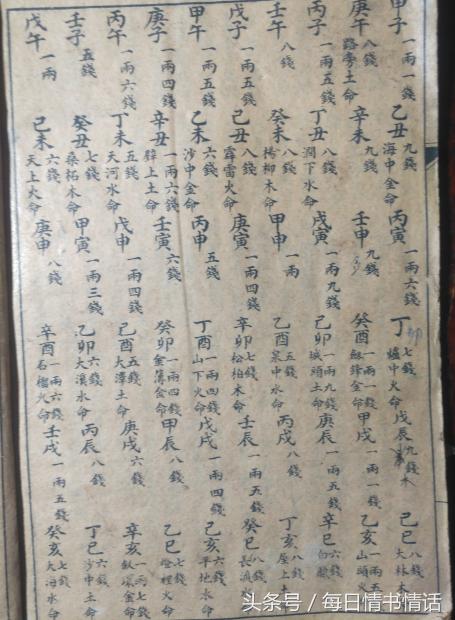 甲子 一兩一錢 乙丑 九錢 海中金命 丙寅 一兩六錢 丁卯 七錢 爐中火命 戊辰 九錢 木 己巳 八錢 大林木
庚午 八錢 路旁土命 辛未 九錢 壬申 九錢 癸酉 一兩一錢 劍鋒金命 甲戌 一兩一錢 乙亥 一兩五 山頭火
丙子 一兩五錢 丁丑 八錢 澗下水命 戊寅 一兩九錢 己卯 一兩九錢 城頭土命 庚辰 一兩五錢 辛巳 六錢 白臘
壬午 八錢 癸未 八錢 楊柳木命 甲申 一兩 乙酉 五錢 泉中水命 丙戌 八錢 丁亥 八錢 屋上
戊子 一兩五錢 己丑 八錢 霹雷火命 庚寅 一兩四錢 辛卯 七錢 松柏木命 壬辰 一兩五錢 癸巳 八錢 長流
甲午 一兩五錢 乙未 六錢 沙中金命 丙申 五錢 丁酉 一兩四錢 山下火命 戊戌 一兩四錢 己亥 六錢 平地木命
庚子 一兩四錢 辛丑 一兩六錢 壁上土命 壬寅 六錢 癸卯 一兩四錢 金簿金命 甲辰 八錢 乙巳 七錢 燈裡火命
丙午 一兩六錢 丁未 五錢 天河水命 戊申 一兩四錢 己酉 五錢 大澤土命 庚戌 六錢 辛亥 一兩七錢 釵環金命
壬子 五錢 癸丑 七錢 桑柘木命 甲寅 一兩三錢 乙卯 六錢 大溪水命 丙辰 八錢 丁巳 六錢 沙中土命
戊午 一兩 己未 六錢 天上火命 庚申 八錢 辛酉 一兩六錢 石榴火命 壬戌 一兩五錢 癸亥 七錢 大海水命
头条号 / 每日情书情话